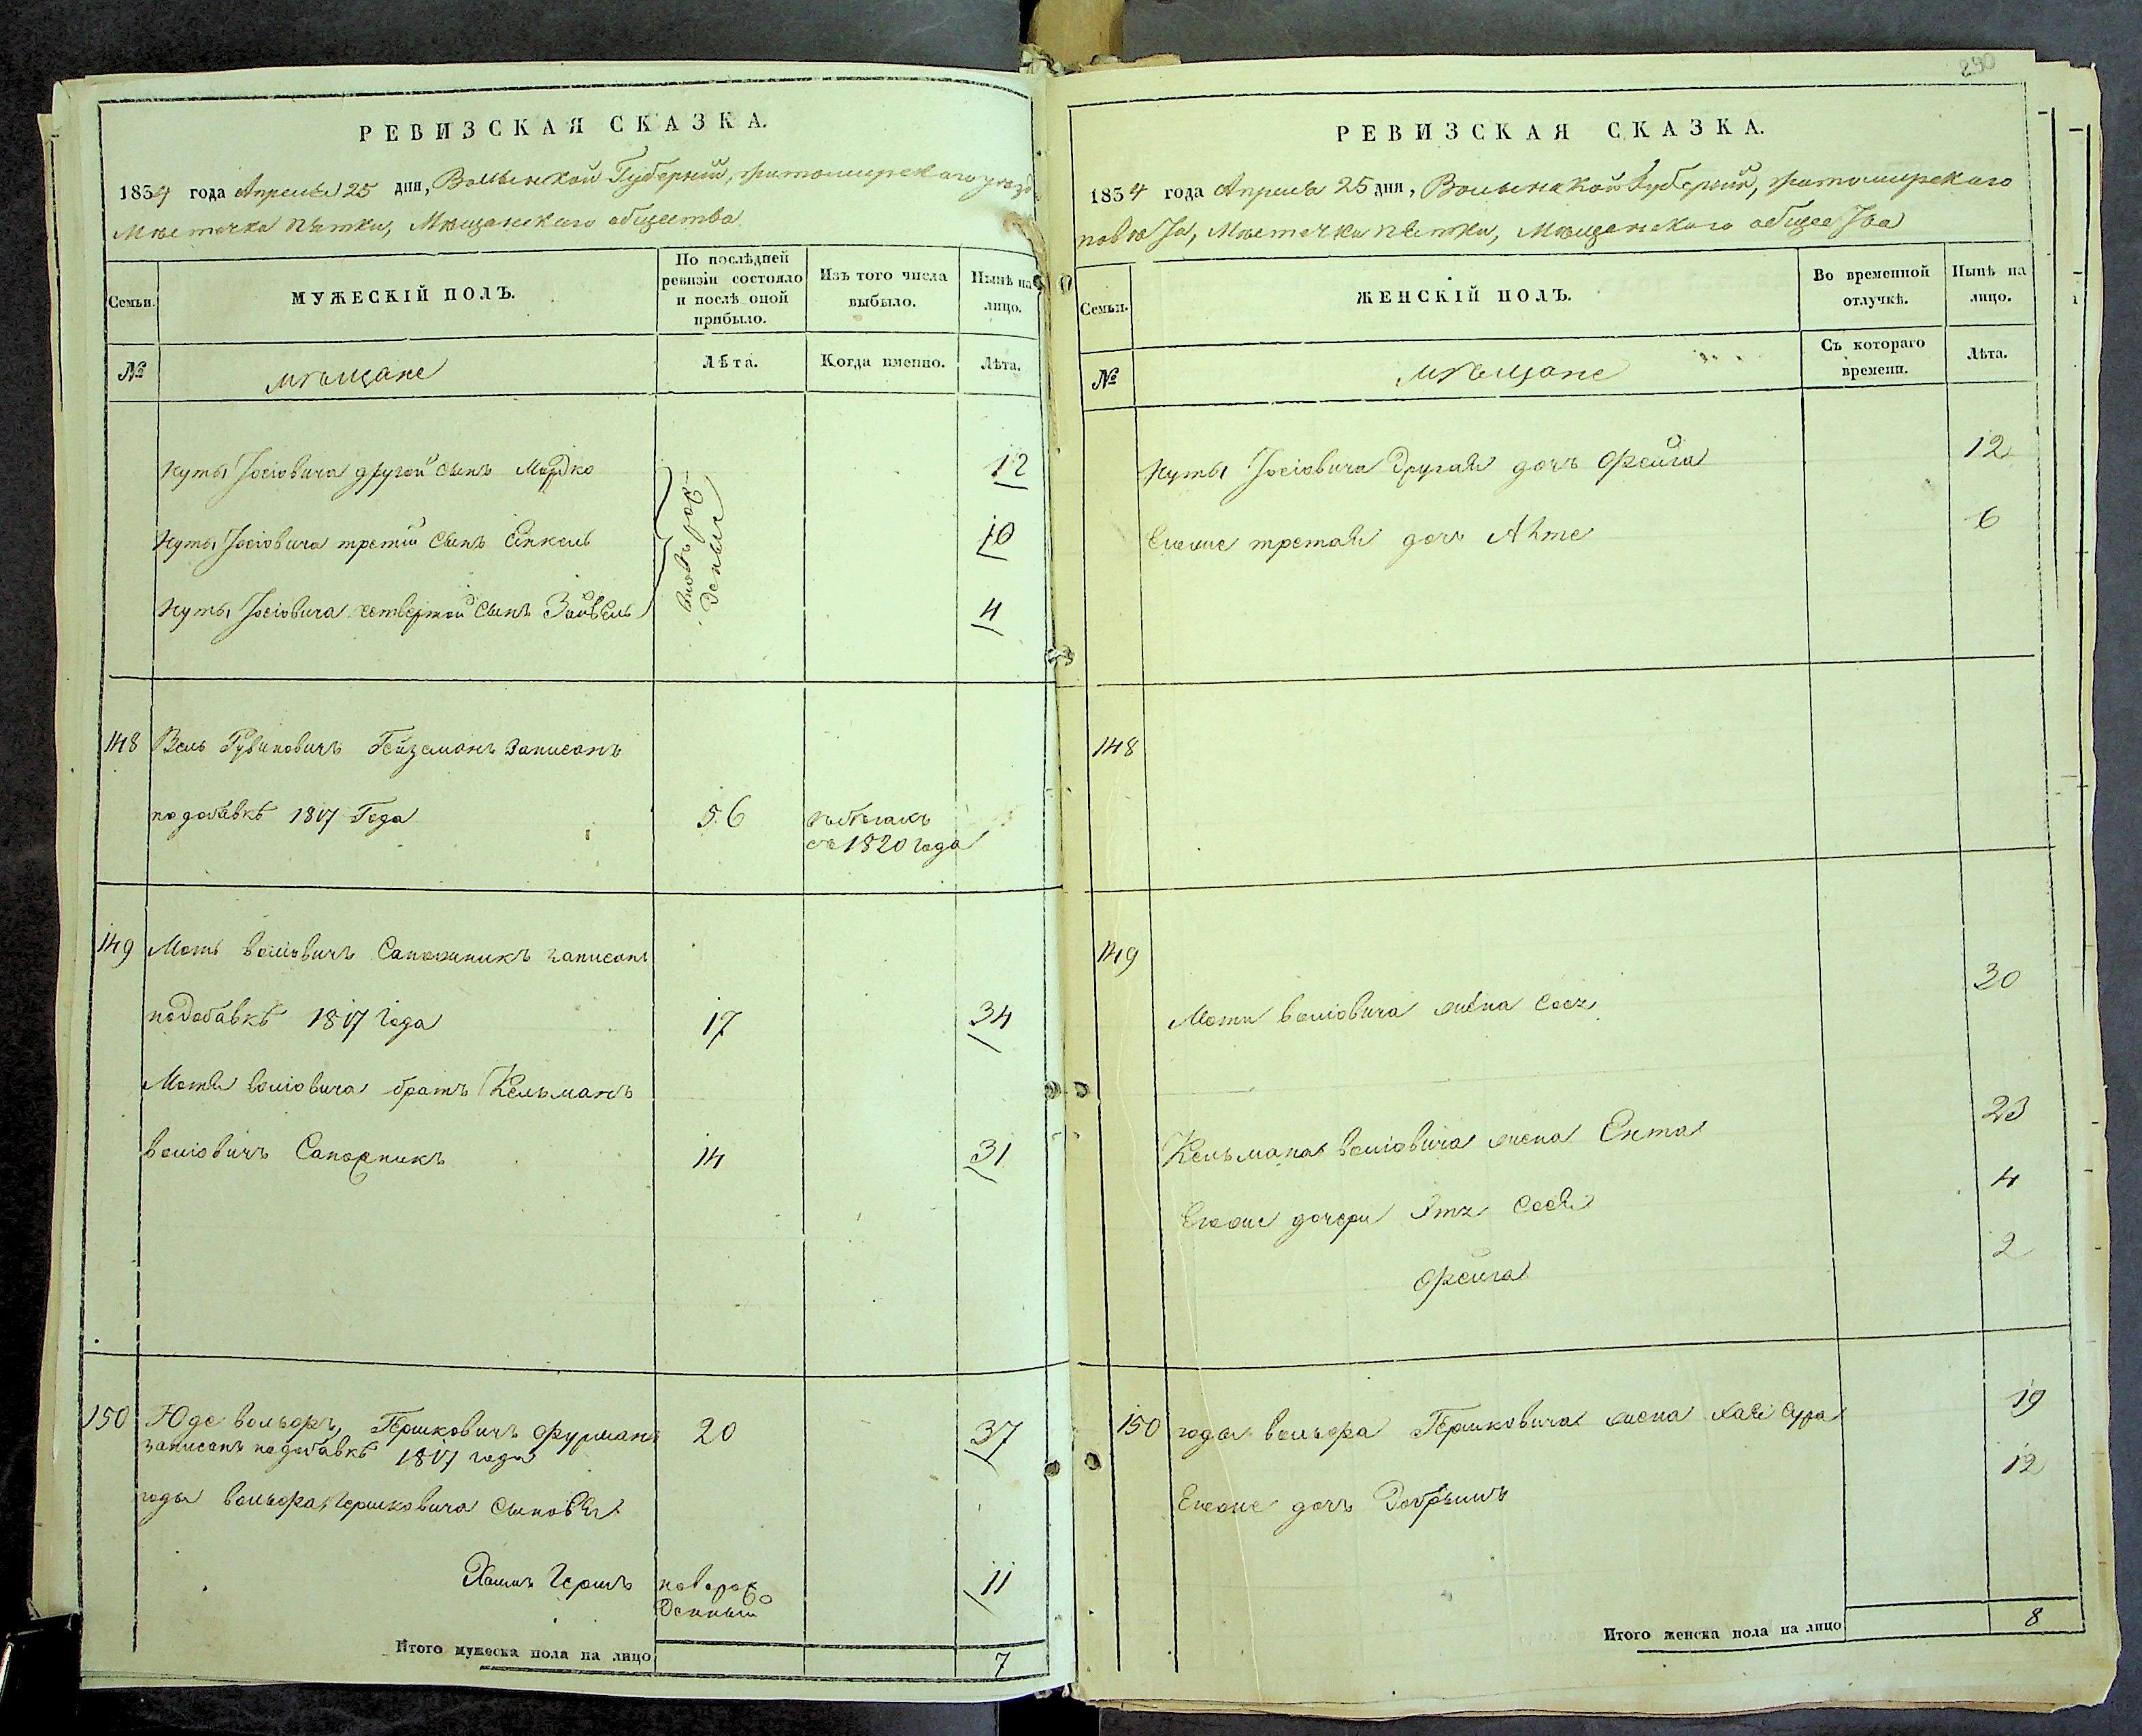 РЕВИЗСКАЯ СКАЗКА.
1834 года Апреля 25 дня, Волынской Губерній, житомирского уезд
Мѣстечка пѣтки, Мѣщанского общества
Семьи.
МУЖЕСКІЙ ПОЛЪ.
По послѣдней ревизіи состояло и послѣ оной прибыло.
Изъ того числа выбыло.
Нынѣ на лицо.
№
мѣщане
Лѣта.
Когда именно.
Лѣта.
Нуты Іосіовича другой сынъ Мордко 12
Нуты Іосіовича третій сынъ Янкель 10
Нуты Іосіовича четвертой сынъ Зайвель 4
вновь рож
денные
148 Вель Рувиновичъ Гейземанъ Записанъ
подобавкѣ 1817 Года 56
съ 1820 года
149 Моть воліовичъ Сапожникъ записанъ
подобавкѣ 1817 Года 17 34
Мотя воліовича братъ Кельманъ
воліовичъ Сапожникъ 14 31
150 Юде вольфъ Гершковичъ Фурманъ 20 37
записанъ подобавкѣ 1817 года
юды вольфа Гершковича сыновья
Хаимъ Гершъ новорож 11
денный
Итого мужеска пола на лицо 7
290
РЕВИЗСКАЯ СКАЗКА.
1834 года Апреля 25 дня, Волынской Губерній, житомирского
повѣта, Мѣстечка пѣтки, Мѣщанского общества
Семьи.
ЖЕНСКІЙ ПОЛЪ.
Во временной отлучкѣ.
Нынѣ на лицо.
№
мѣщане
Съ котораго времени.
Лѣта.
Нуты Іосіовича другая дочь Фейга 12
Егоже третая дочь 6
148
149
Моти воліовича жена 30
Кельмана воліовича жена Ента 23
Егоже дочери 4
Фейга 2
150 юды вольфа Гершковича жена Хаѣ Сура 19
Егоже дочь Добрышъ 12
Итого женска пола на лицо 8